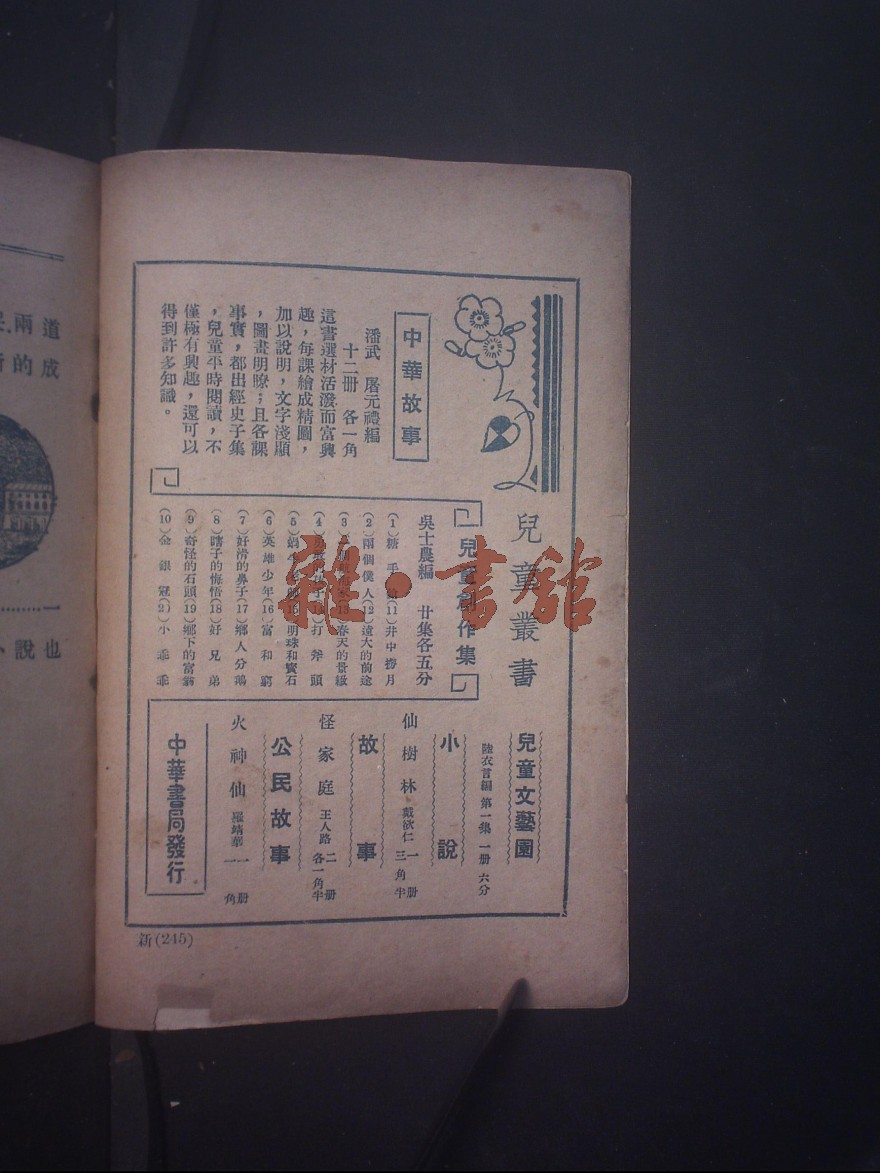 兒童叢書
中華故事
潘武 屠元禮編
十二册 各一角
這書選材活潑而富興
趣，每課繪成精圖，
加以說明，文字淺顯
，圖畫明瞭；且各課
事實，都出經史子集
，兒童平時閱讀，不
僅極有興趣，還可以
得到許多知識。
兒童創作集
吳士農編 廿集各五分
(1)糖手 (11)井中撈月
(2)兩個僕人(12)遠大的前途
(3) (13)春天的景緻
(4) (14)打斧頭
(5) (15)明珠和寶石
(6)英雄少年(16)富和窮
(7)好滑的鼻子(17)鄉人分鵝
(8)瞎子的悔悟(18)好兄弟
(9)奇怪的石頭(19)鄉下的富翁
(10)金銀冠(2)小乖乖
兒童文藝園
陸衣言編 第一集 一册 六分
小說
仙樹林 戴欲仁 一册 三角半
故事
怪家庭 王人路 二册 各一角半
公民故事
火神仙 羅靖華 一册 一角
中華書局發行
新(245)
雜·書館
道兩
成的
也說小